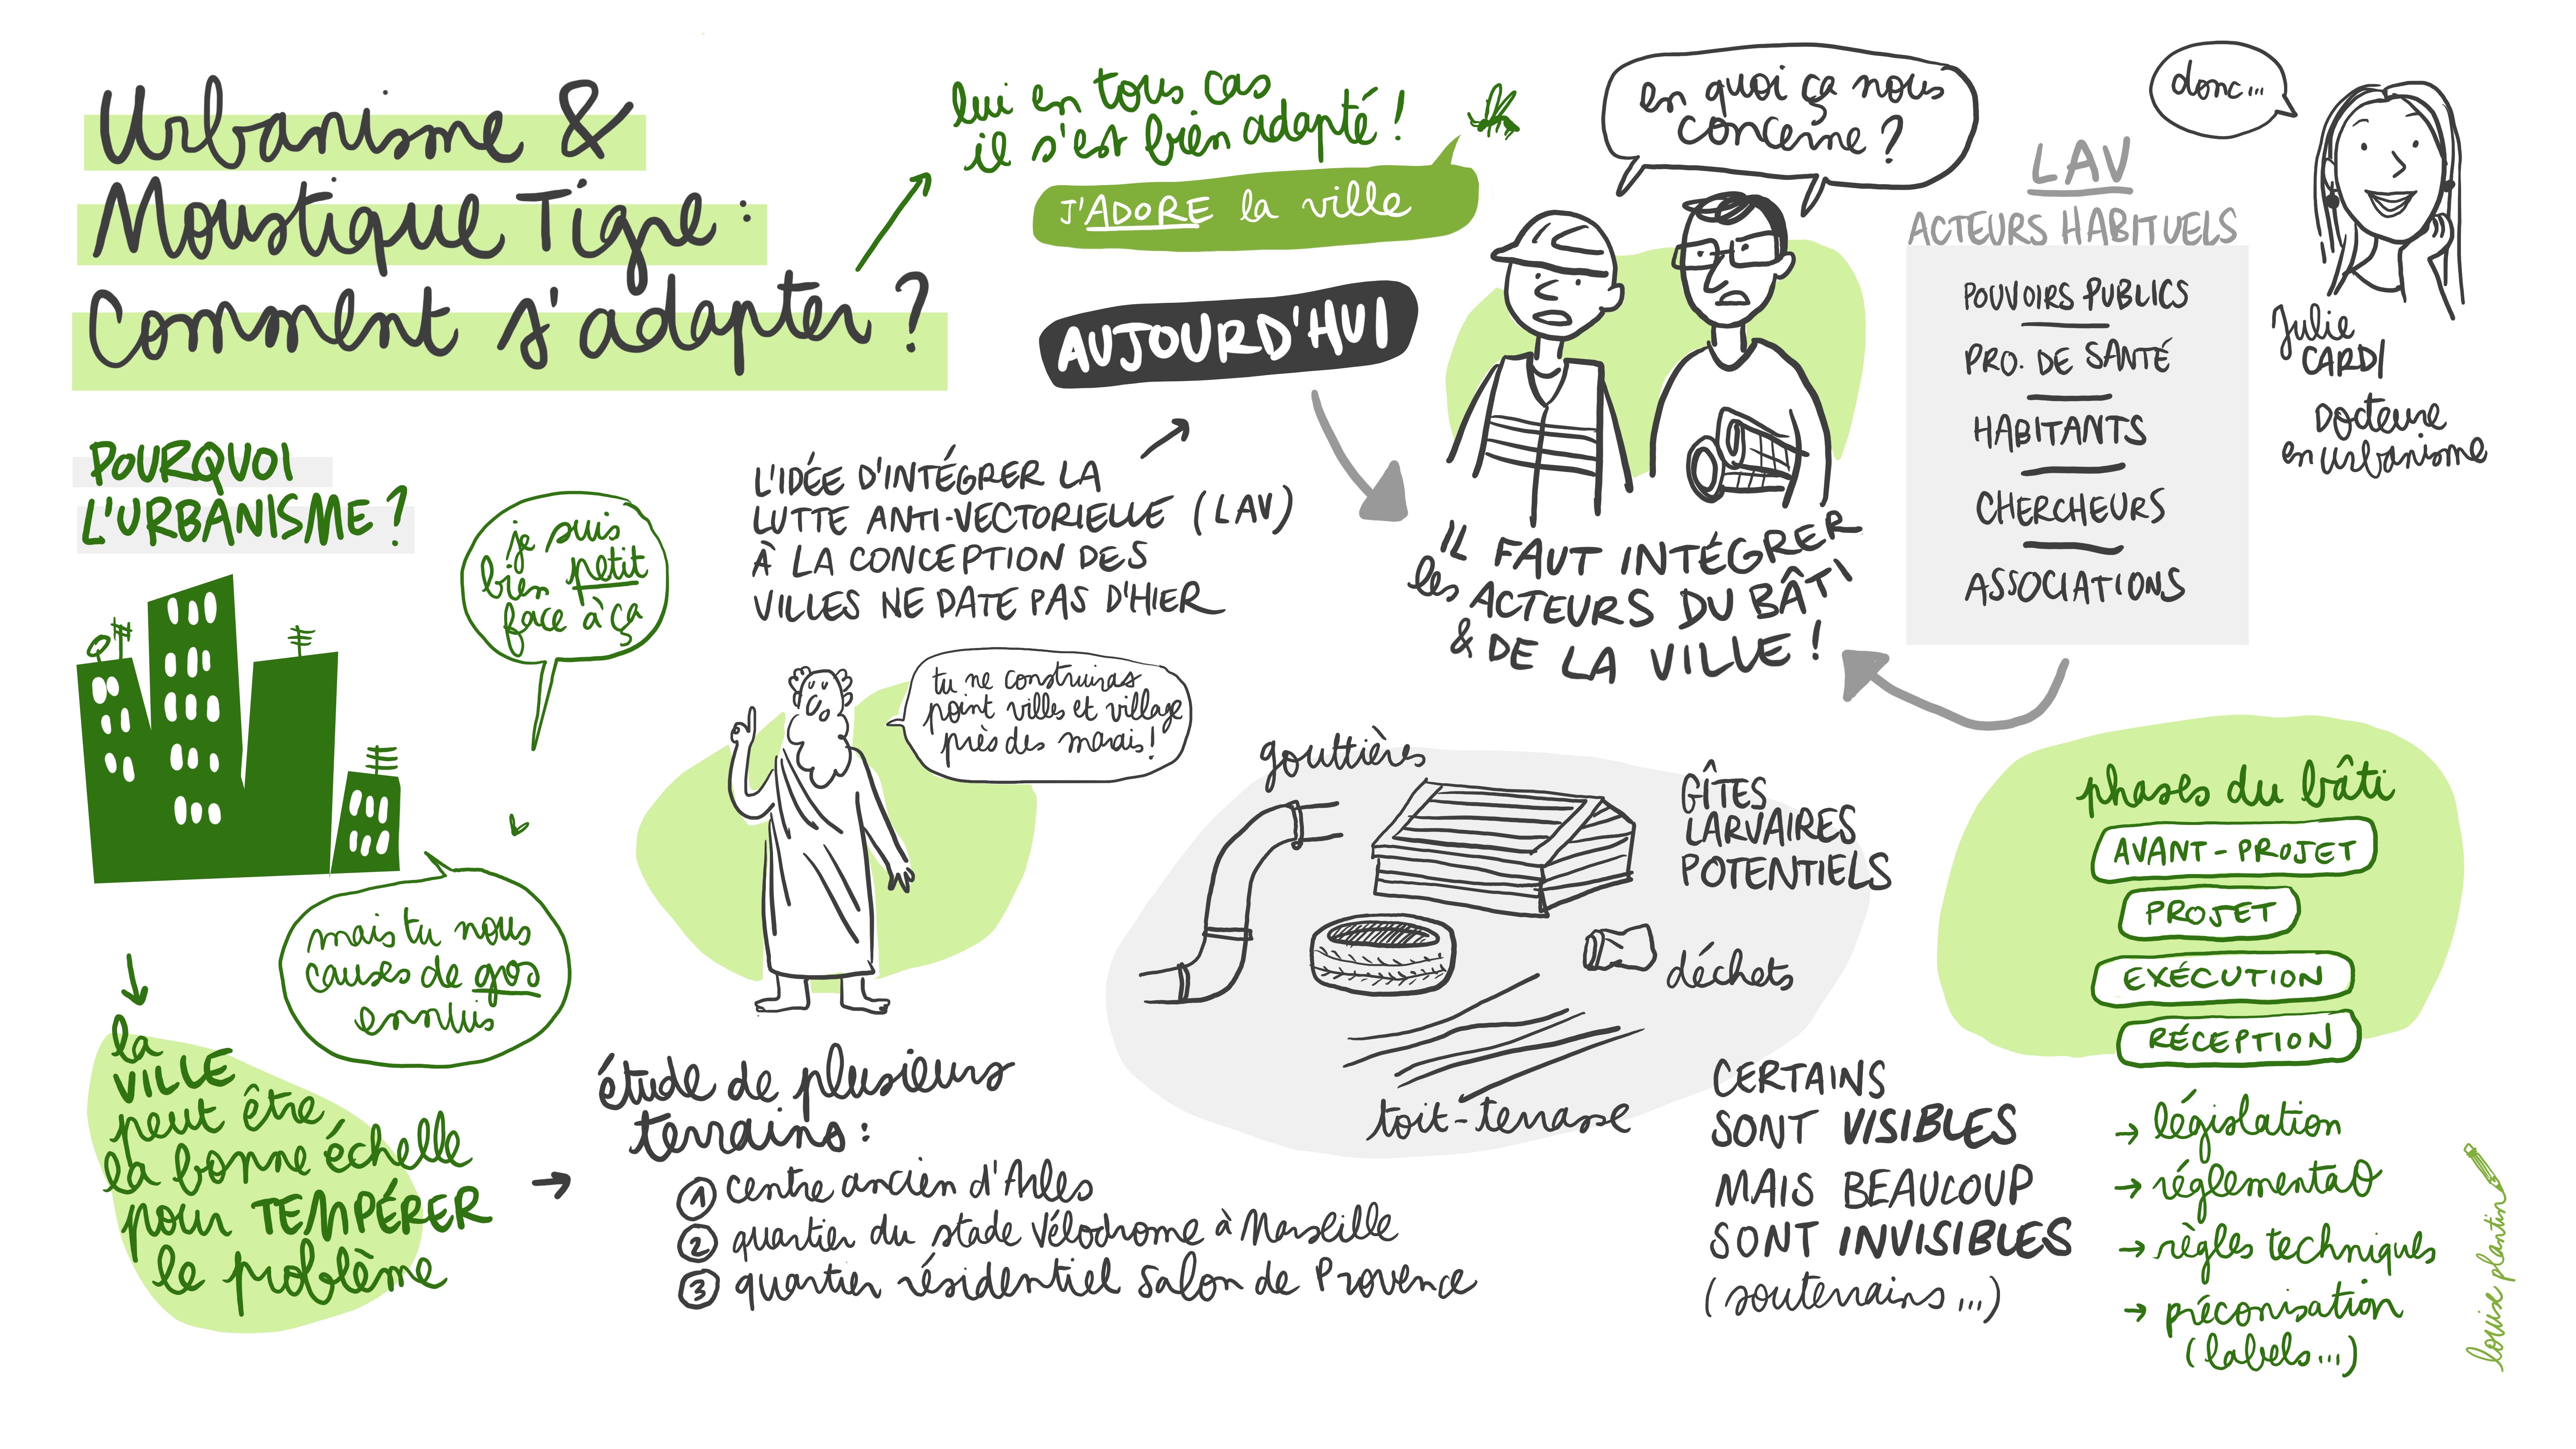 Urbanisme &
Moustique Tigre :
Comment s'adapter ?
lui en tous cas
il s'est bien adapté !
J'ADORE la ville
en quoi ça nous
concerne ?
donc...
LAV
ACTEURS HABITUELS
POUVOIRS PUBLICS
PRO. DE SANTÉ
HABITANTS
CHERCHEURS
ASSOCIATIONS
Julie
CARDI
Docteure
en urbanisme
POURQUOI
L'URBANISME ?
je suis
bien petit
face à ça
mais tu nous
causes de gros
ennuis
la
VILLE
peut être
la bonne échelle
pour TEMPÉRER
le problème
L'IDÉE D'INTÉGRER LA
LUTTE ANTI-VECTORIELLE (LAV)
À LA CONCEPTION DES
VILLES NE DATE PAS D'HIER
tu ne construiras
point villes et village
près des marais !
AUJOURD'HUI
IL FAUT INTÉGRER
les ACTEURS DU BÂTI
& DE LA VILLE !
étude de plusieurs
terrains :
1 centre ancien d'Arles
2 quartier du stade Vélodrome à Marseille
3 quartier résidentiel Salon de Provence
gouttières
GÎTES
LARVAIRES
POTENTIELS
déchets
toit-terrasse
CERTAINS
SONT VISIBLES
MAIS BEAUCOUP
SONT INVISIBLES
(souterrains...)
phases du bâti
AVANT-PROJET
PROJET
EXÉCUTION
RÉCEPTION
→ législation
→ réglementaO
→ règles techniques
→ préconisation
(labels...)
louise plantin